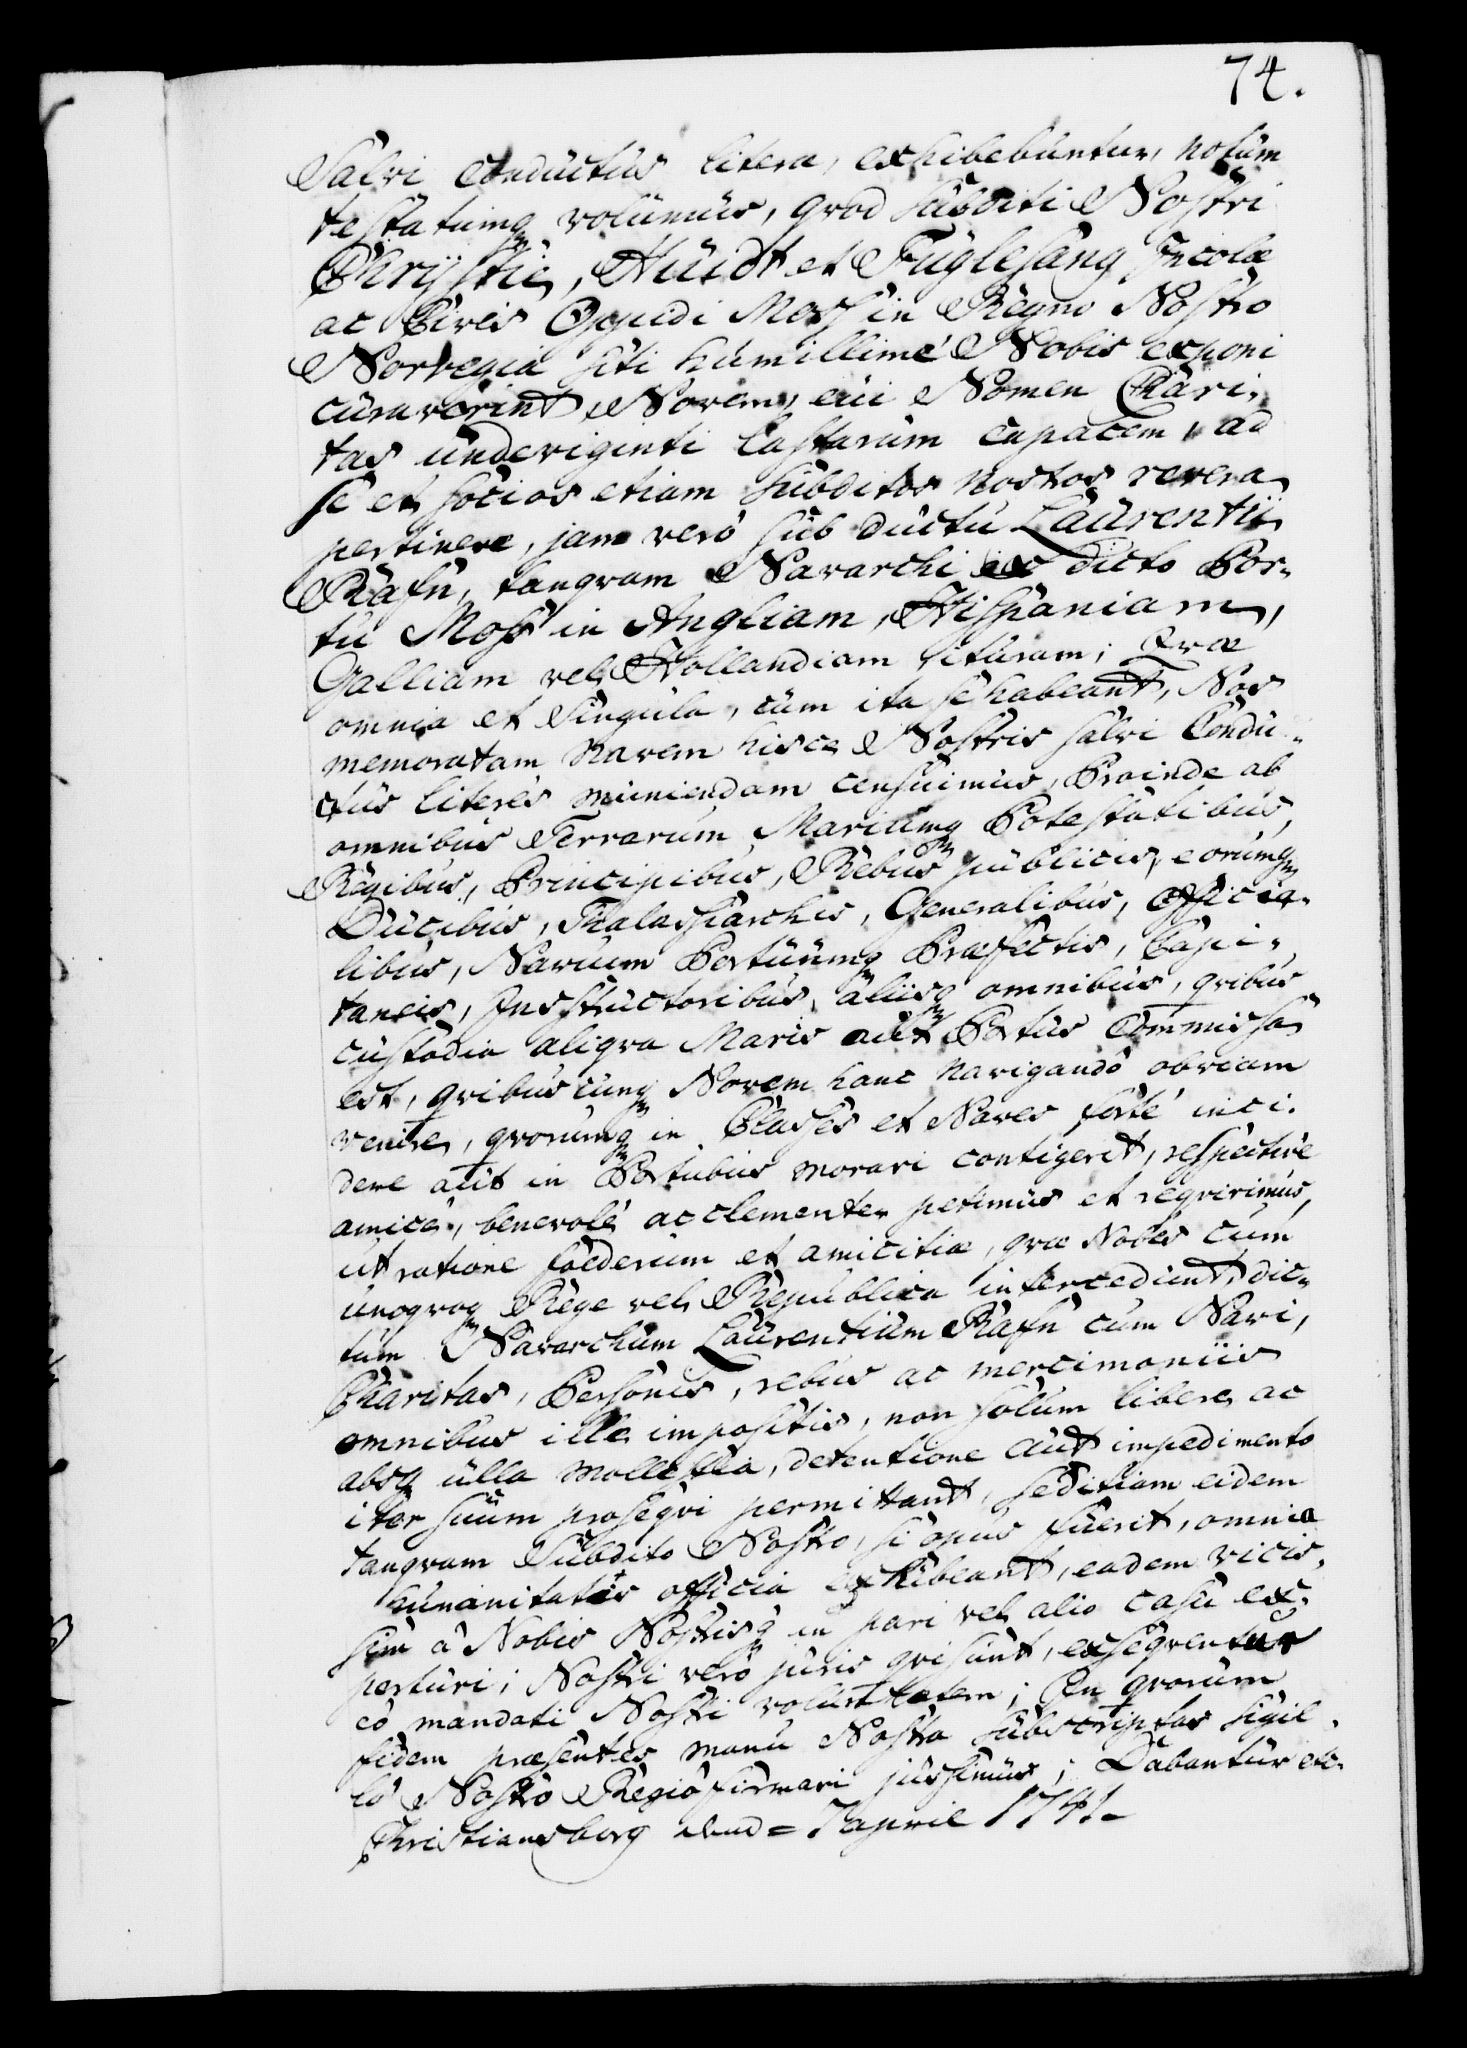 74.
Salvi Conductus literæ, exhibebuntur, notum
testatumq volumus, qvod subditi Nostri
Chrystie, Huidt et Fuglesang Incolæ
ac Cives Oppidi Moss in Regno Nostro
Norvegia siti humillimé Nobis exponi
curaverint Navem, cui Nomen Chari,
tas undeviginti lastarum capacem, ad
se et socios etiam subditos nostros revera
pertinere, jam veró sub ductu Laurentii
Rafn, tanqvam Navarchi ex dicto Por,
tu Moss in Angliam, Hispaniam,
Galliam vel Hollandiam ituram; Qvæ
omnia et singula, cum ita se habeant, Nos
memoratam navem hisce Nostris salvi Condu,
ctus literis muniendam censuimus, Proinde ab
omnibus Terrarum Mariumq Potestatibus,
Regibus, Principibus, Rebus publicis, eorumq
Ducibus, Thalassiarchis, Generalibus, Officia,
libus, Navium Portuumq Præfectis, Capi,
taneis, Inspectoribus, aliisq omnibus, qvibus
custodia aliqva Maris aut Portus Commissa
est, qvibuscunq Navem hanc navigando obviam
venire, qvorumq in Classes et Naves forté inci.
dere aut in Portubus morari contigerit, respectivé
amicé, benevolé ac clementer petimus et reqvirimus,
ut ratione foederum et amicitiæ, qvæ Nobis cum
unoqvoq Rege vel Republica intercedunt, dic,
tum Navarchum Laurentium Rafn cum Navi,
Charitas, Personis, rebus ac mercimoniis
omnibus illi impositis, non solum libere ac
absq ulla mollestia, detentione aut impedimento
iter suum proseqvi permittant, sed etiam eidem
tanqvam Subdito Nostro, si opus fuerit, omnia
humanitatis officia exhibeant, eadem vicis,
sim à Nobis Nostrisq in pari vel alio casu ex,
perturi; Nostri veró juris qvi sunt, exseqventur
eo mandati Nostri voluntatem; In qvorum
fidem præsentes manu Nostra subscriptas sigil,
lo Nostro Regio firmari jussimus; Dabantur etc.
Christiansborg dend = 7 april 1741.